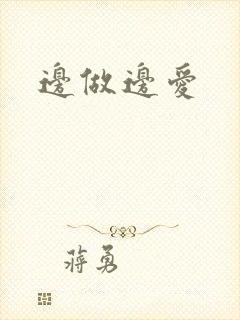 邊做邊愛
蔣勇